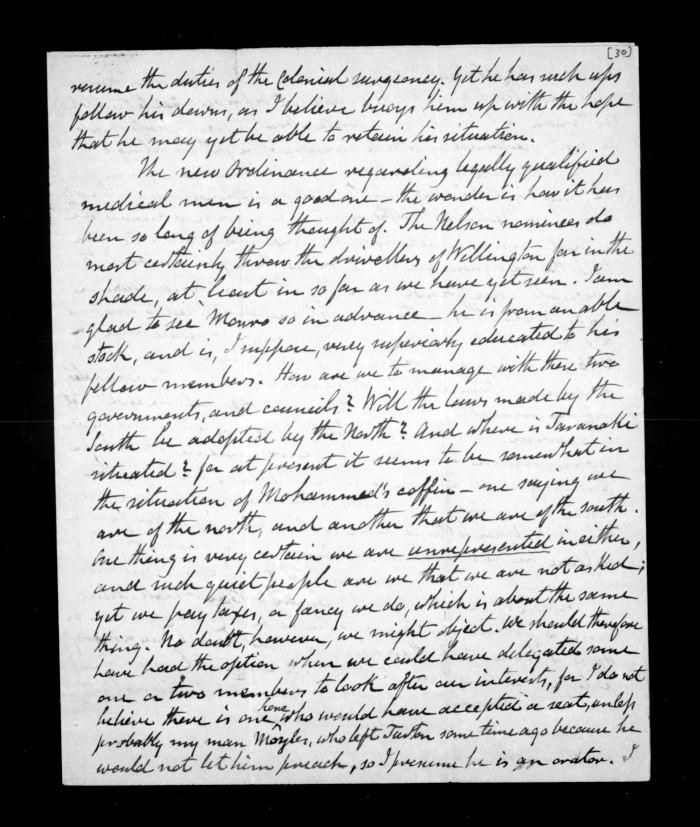 [30]
resume the duties of the Colonial surgeoncy. Yet he has such ups
follow his downs, as I believe buoys him up with the hope
that he may yet be able to retain his situation.
The new Ordinance regarding legally qualified
medical men is a good one - the wonder is how it has
been so long of being thought of. The Nelson nominees do
most certainly throw the drivellers of Wellington far in the
shade, at least in so far as we have yet seen. I am
glad to see Monro so in advance - he is from an able
stock, and is, I suppose, very superiorly educated to his
fellow members. How are we to manage with these two
governments, and councils? Will the laws made by the
South be adopted by the North? And where is Taranaki
situated? for at present it seems to be somewhat in
the situation of Mohammed's coffin - one saying we
are of the north, and another that we are of the south.
One thing is very certain we are unrepresented in either,
and such quiet people are we that we are not asked;
yet we pay taxes, or fancy we do, which is about the same
thing. No doubt, however, we might object. We should therefore
have had the option when we could have delegated some
one or two members to look after our interests, for I do not
believe there is one here who would have accepted a seat, unless
probably my man Moyles, who left Tuxton some time ago because he
would not let him preach, so I presume he is an orator. I